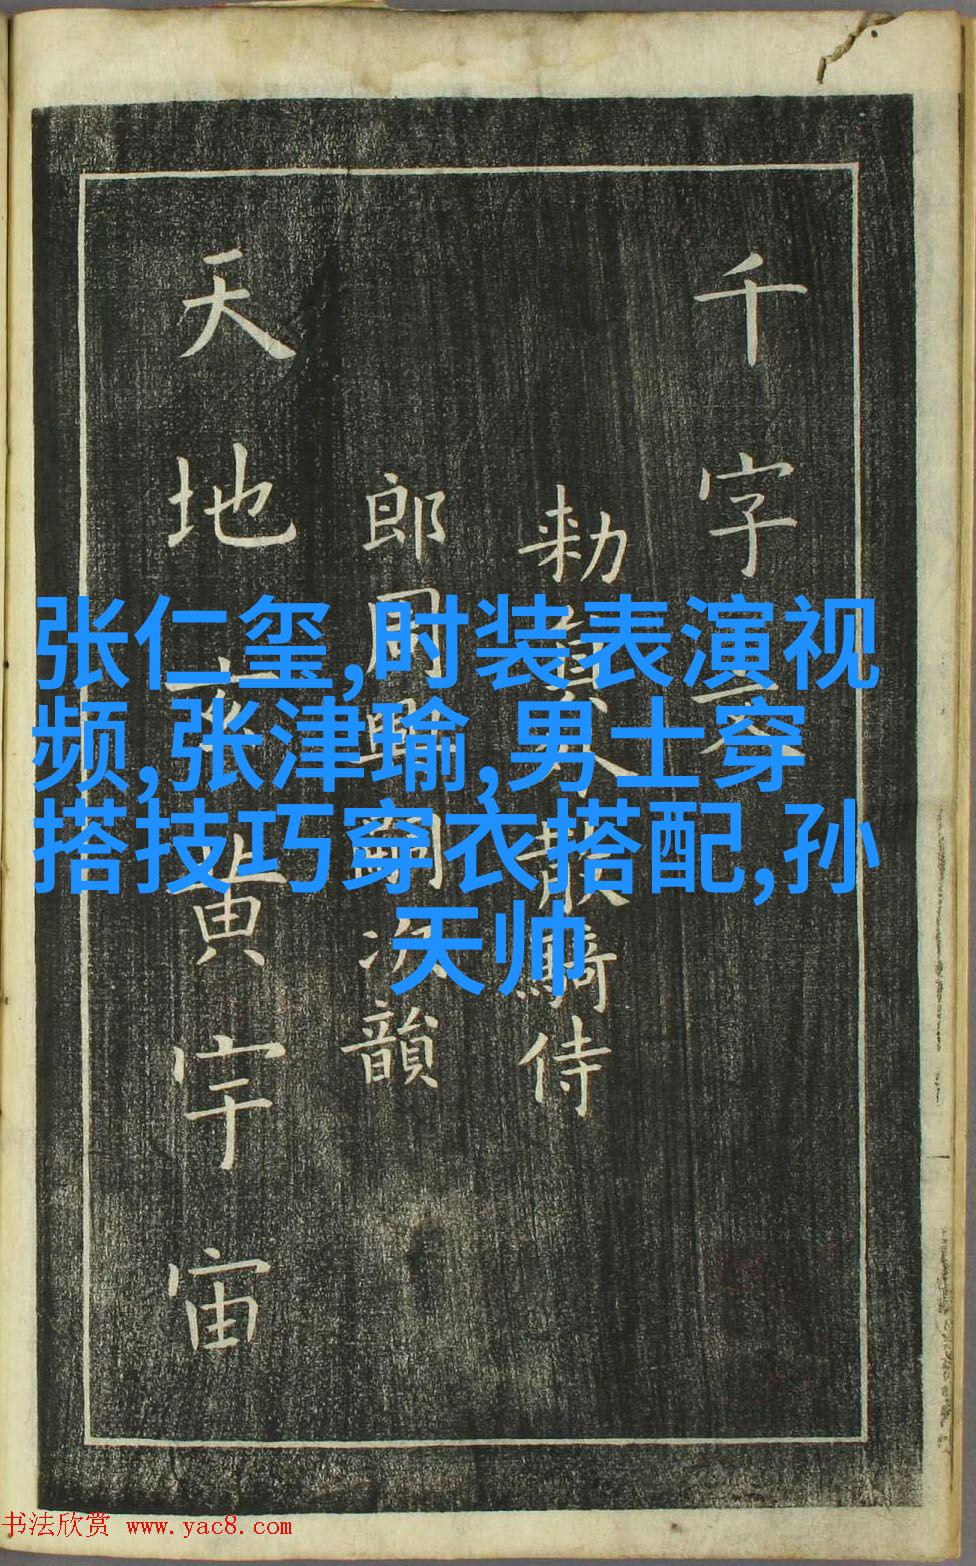 千字文
勅員外散騎侍
郎周興嗣次韻
天地玄黃宇宙
张仁玺,时装表演视
频,张津瑜,男士穿
搭技巧穿衣搭配,孙
天帅
书法欣赏 www.yac8.com